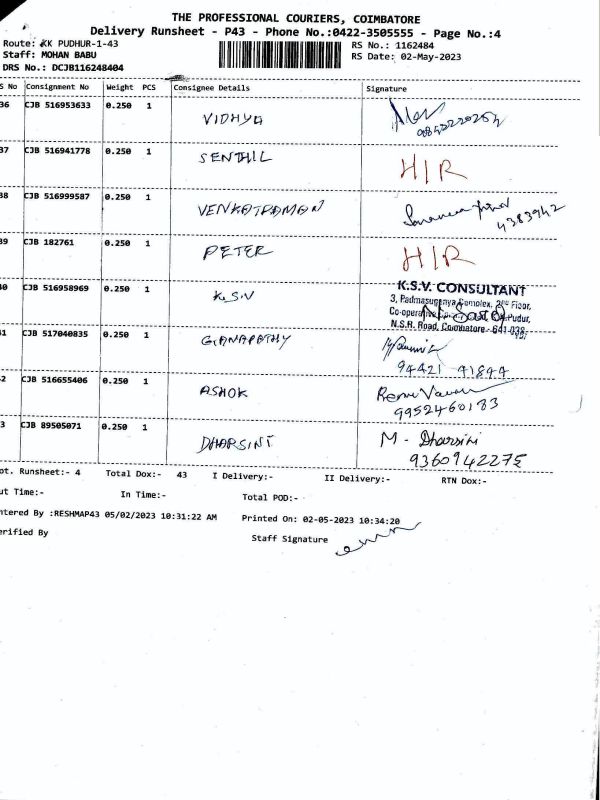 THE PROFESSIONAL COURIERS, COIMBATORE
Delivery Runsheet - P43 - Phone No.:0422-3505555 - Page No.:4
Route: KK PUDHUR-1-43 RS No.: 1162484
Staff: MOHAN BABU RS Date: 02-May-2023
DRS No.: DCJB116248404
S No Consignment No Weight PCS Consignee Details Signature
36 CJB 516953633 0.250 1 VIDHYA
37 CJB 516941778 0.250 1 SENTHIL H/R
38 CJB 516999587 0.250 1 VENKATRAMAN
4383942
39 CJB 182761 0.250 1 PETER H/R
40 CJB 516958969 0.250 1 K.S.V K.S.V. CONSULTANT
3, Padmasuganya Complex, 2nd Floor,
Co-operative Pudur,
N.S.R. Road, Coimbatore - 641 038.
41 CJB 517040835 0.250 1 GANAPATHY
94421 91844
42 CJB 516655406 0.250 1 ASHOK
9952460183
43 CJB 89505071 0.250 1 DHARSINI M - Dharsini
9360942275
ot. Runsheet:- 4 Total Dox:- 43 I Delivery:- II Delivery:- RTN Dox:-
ut Time:- In Time:- Total POD:-
ntered By :RESHMAP43 05/02/2023 10:31:22 AM Printed On: 02-05-2023 10:34:20
erified By Staff Signature